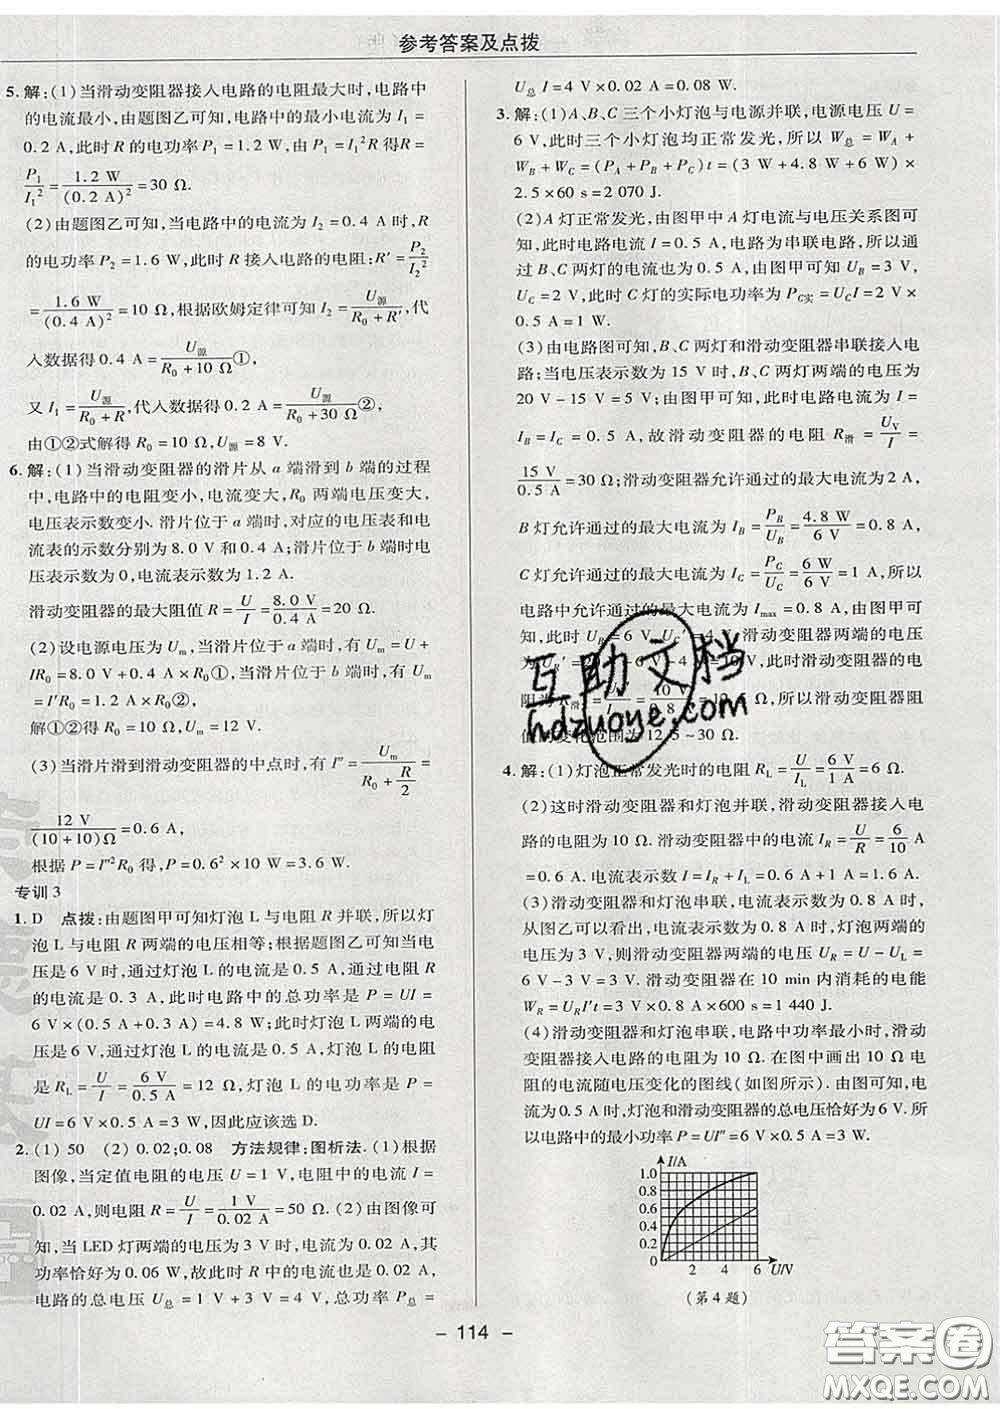 参考答案及点拨
5. 解:(1)当滑动变阻器接入电路的电阻最大时,电路中
的电流最小,由题图乙可知,电路中的最小电流为 I₁ =
0.2 A,此时 R 的电功率 P₁ = 1.2 W,由 P₁ = I₁²R 得 R =
P₁/I₁² = 1.2 W/(0.2 A)² = 30 Ω.
(2)由题图乙可知,当电路中的电流为 I₂ = 0.4 A 时, R
的电功率 P₂ = 1.6 W,此时 R 接入电路的电阻:R′ = P₂/I₂²
= 1.6 W/(0.4 A)² = 10 Ω,根据欧姆定律可知 I₂ = U源/(R₀ + R′),代
入数据得 0.4 A = U源/(R₀ + 10 Ω)①,
又 I₁ = U源/(R₀ + R),代入数据得 0.2 A = U源/(R₀ + 30 Ω)②,
由①②式解得 R₀ = 10 Ω,U源 = 8 V.
6. 解:(1)当滑动变阻器的滑片从 a 端滑到 b 端的过程
中,电路中的电阻变小,电流变大,R₀ 两端电压变大,
电压表示数变小.滑片位于 a 端时,对应的电压表和电
流表的示数分别为 8.0 V 和 0.4 A;滑片位于 b 端时电
压表示数为 0,电流表示数为 1.2 A.
滑动变阻器的最大阻值 R = U/I = 8.0 V/0.4 A = 20 Ω.
(2)设电源电压为 Um,当滑片位于 a 端时,有 Um = U +
IR₀ = 8.0 V + 0.4 A × R₀①,当滑片位于 b 端时,有 Um
= I′R₀ = 1.2 A × R₀②,
解①②得 R₀ = 15 Ω,Um = 12 V.
(3)当滑片滑到滑动变阻器的中点时,有 I″ = Um/(R₀ + R/2) =
12 V/(10 + 10)Ω = 0.6 A,
根据 P = I″²R₀ 得,P = 0.6² × 10 W = 3.6 W.
专训 3
1. D 点拨:由题图甲可知灯泡 L 与电阻 R 并联,所以灯
泡 L 与电阻 R 两端的电压相等;根据题图乙可知当电
压是 6 V 时,通过灯泡 L 的电流是 0.5 A,通过电阻 R
的电流是 0.3 A,此时电路中的总功率是 P = UI =
6 V × (0.5 A + 0.3 A) = 4.8 W;此时灯泡 L 两端的电
压是 6 V,通过灯泡 L 的电流是 0.5 A,灯泡 L 的电阻
是 RL = U/I = 6 V/0.5 A = 12 Ω,灯泡 L 的电功率是 P =
UI = 6 V × 0.5 A = 3 W,因此应该选 D.
2. (1) 50 (2) 0.02;0.08 方法规律:图析法.(1)根据
图像,当定值电阻的电压 U = 1 V,电阻中的电流 I =
0.02 A,则电阻 R = U/I = 1 V/0.02 A = 50 Ω.(2)由图像可
知,当 LED 灯两端的电压为 3 V 时,电流为 0.02 A,其
功率恰好为 0.06 W,故此时 R 中的电流也是 0.02 A,
电路的总电压 U总 = 1 V + 3 V = 4 V,总功率 P总 =
U总 I = 4 V × 0.02 A = 0.08 W.
3. 解:(1)A、B、C 三个小灯泡与电源并联,电源电压 U =
6 V,此时三个小灯泡均正常发光,所以 W总 = WA +
WB + WC = (PA + PB + PC)t = (3 W + 4.8 W + 6 W) ×
2.5 × 60 s = 2 070 J.
(2)A 灯正常发光,由图甲中 A 灯电流与电压关系图可
知,此时电路电流 I = 0.5 A,电路为串联电路,所以通
过 B、C 两灯的电流也为 0.5 A,由图甲可知 UB = 3 V,
UC = 2 V,此时 C 灯的实际电功率为 PC实 = UCI = 2 V ×
0.5 A = 1 W.
(3)由电路图可知,B、C 两灯和滑动变阻器串联接入电
路;当电压表示数为 15 V 时,B、C 两灯两端的电压为
20 V - 15 V = 5 V;由图甲可知,此时电路电流 I =
IB = IC = 0.5 A,故滑动变阻器的电阻 R滑 = UV/I =
15 V/0.5 A = 30 Ω;滑动变阻器允许通过的最大电流为 2 A,
B 灯允许通过的最大电流为 IB = PB/UB = 4.8 W/6 V = 0.8 A,
C 灯允许通过的最大电流为 IC = PC/UC = 6 W/6 V = 1 A,所以
电路中允许通过的最大电流为 Imax = 0.8 A,由图甲可
知,此时 UB′ = 6 V,UC′ = 4 V,滑动变阻器两端的电压
为 UR′ = 20 V - 6 V - 4 V = 10 V,此时滑动变阻器的电
阻为 R滑′ = 10 V/0.8 A = 12.5 Ω,所以滑动变阻器阻
值的变化范围为 12.5~30 Ω.
4. 解:(1)灯泡正常发光时的电阻 RL = U/IL = 6 V/1 A = 6 Ω.
(2)这时滑动变阻器和灯泡并联,滑动变阻器接入电
路的电阻为 10 Ω.滑动变阻器中的电流 IR = U/R = 6/10 A
= 0.6 A.电流表示数 I = IR + IL = 0.6 A + 1 A = 1.6 A.
(3)滑动变阻器和灯泡串联,电流表示数为 0.8 A 时,
从图乙可以看出,灯泡中的电流为 0.8 A,灯泡两端的
电压为 3 V,则滑动变阻器两端的电压 UR = U - UL =
6 V - 3 V = 3 V.滑动变阻器在 10 min 内消耗的电能
WR = URI′t = 3 V × 0.8 A × 600 s = 1 440 J.
(4)滑动变阻器和灯泡串联,电路中功率最小时,滑动
变阻器接入电路的电阻为 10 Ω.在图中画出 10 Ω 电
阻的电流随电压变化的图线(如图所示).由图可知,电流
为 0.5 A 时,灯泡和滑动变阻器的总电压恰好为 6 V.所
以电路中的最小功率 P = UI″ = 6 V × 0.5 A = 3 W.
I/A
1.0
0.8
0.6
0.4
0.2
0 2 4 6 U/V
(第 4 题)
- 114 -
互助文档
hdzuoye.com
答案圈
MXQE.COM